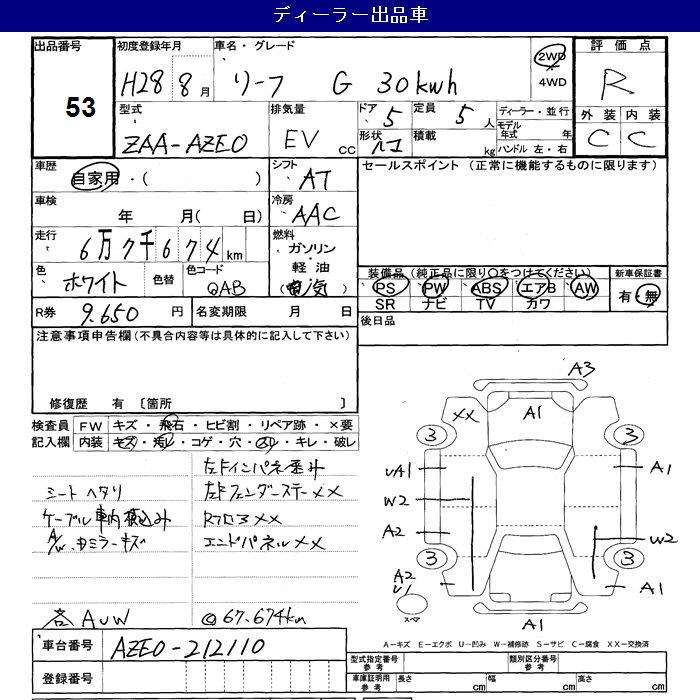 ディーラー出品車
出品番号 53
初度登録年月 H28 8月
車名・グレード リーフ G 30kwh
2WD
4WD
評価点 R
外装 C 内装 C
型式 ZAA-AZE0
排気量 EV CC
ドア 5 定員 5人
形状 積載 kg
ディーラー・並行
モデル年式 年
ハンドル 左・右
車歴 自家用・( )
シフト AT
セールスポイント (正常に機能するものに限ります)
車検 年 月( 日)
冷房 AAC
走行 6万7千674km
燃料 ガソリン・軽油・(電気)
色 ホワイト 色替 色コード QAB
装備品 (純正品に限り○をつけてください)
新車保証書 有・無
PS PW ABS エアB AW
SR ナビ TV カワ
R券 9.650円 名変期限 月 日
後日品
注意事項申告欄(不具合内容等は具体的に記入して下さい)
修復歴 有 [箇所 ]
検査員記入欄
FW キズ・飛石・ヒビ割・リペア跡・×要
内装 キズ・汚れ・コゲ・穴・スレ・キレ・破レ
左Fインパネ歪み
シートヘタリ 左Fフェンダーステーxx
ケーブル車内積込み Rフロアxx
A/W・ドミラーキズ エンドパネルxx
各AUW
◎67.674km
A3
xx A1
3 3
UA1 A1
W2
A2 W2
3 3
A2
U A1
スペア
A1
A-キズ E-エクボ U-凹み W-補修跡 S-サビ C-腐食 XX-交換済
車台番号 AZE0-212110
登録番号
型式指定番号 参考 類別区分番号 参考
車庫証明用 参考 長さ cm 幅 cm 高さ cm